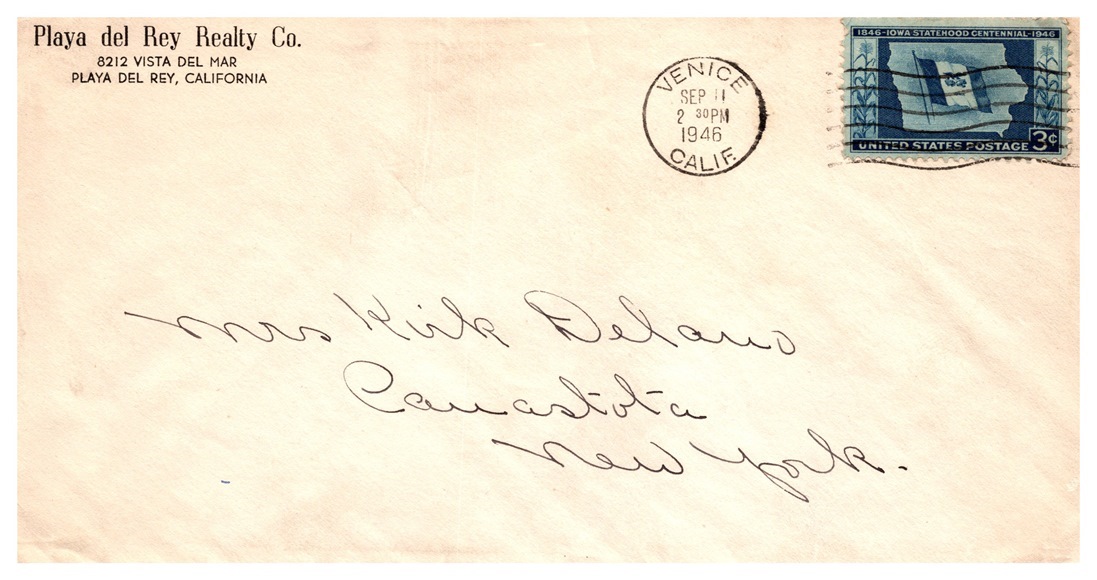 Playa del Rey Realty Co.
8212 VISTA DEL MAR
PLAYA DEL REY, CALIFORNIA
VENICE
SEP 11
2 30 PM
1946
CALIF.
1846-IOWA STATEHOOD CENTENNIAL-1946
UNITED STATES POSTAGE 3¢
Mrs Kirk Delano
Canastota
New York.